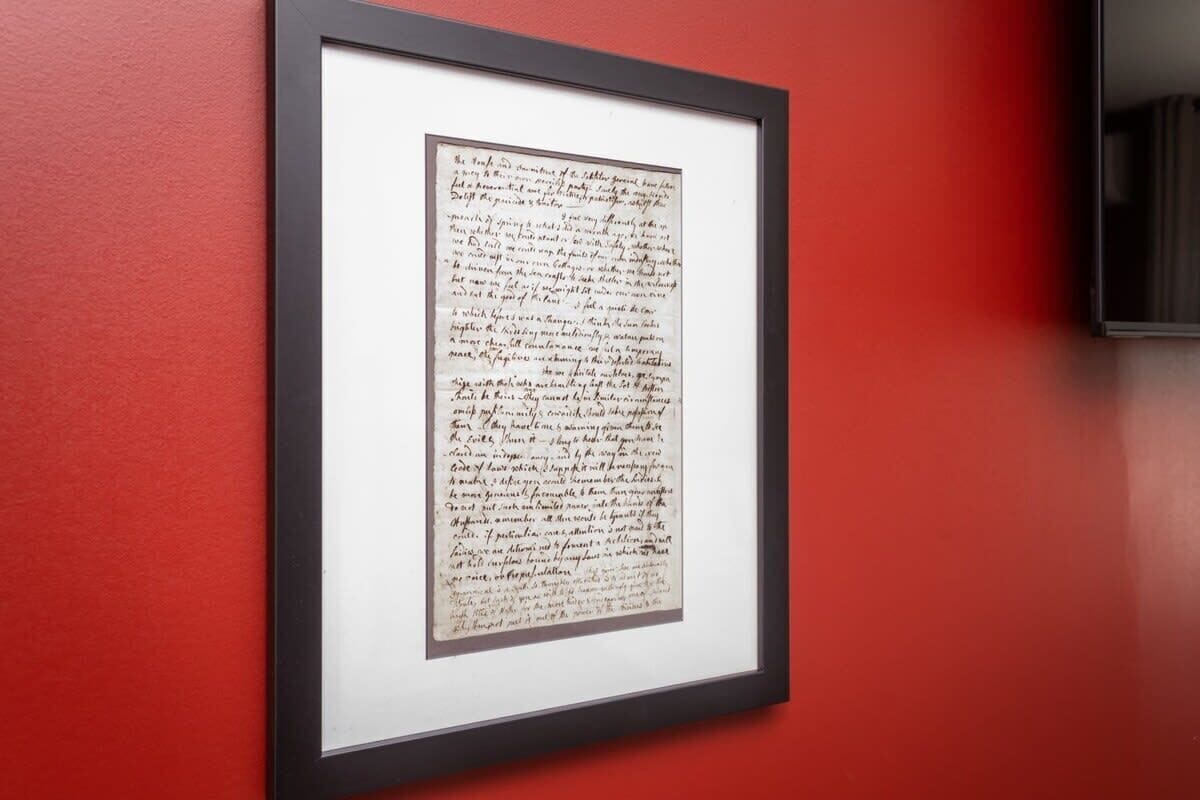 the House and Furniture of the Solisiter General have fallen
a prey to their own merciless party Surely the very Fiends
feel a Reverential awe for Virtue & patriotism, whilst they
Detest the paricide & traitor —
I feel very differently at the ap
proach of spring to what I did a month ago, we knew not
then whether we could plant or sow with safety, whether when
we had toild we could reap the fruits of our own industery, whether
we could rest in our own Cottages, or whether we should not
be driven from the sea coasts to seek shelter in the wilderness
but now we feel as if we might sit under our own vine
and eat the good of the land — I feel a gaieti de Coar
to which before I was a stranger, I think the Sun looks
brighter the Birds sing more melodiously & Nature puts on
a more chearfull countanance. we feel a temporary
peace, & the fugitives are returning to their deserted habitations
tho we felicitate ourselves, we sympa
thize with those who are trembling least the Lot of Boston
should be theirs — they cannot be in similar circumstances
unless pusilanimity & cowardise should take possession of
them — they have time & warning given them to see
the Evil & shun it — I long to hear that you have de
clared an independancy — and by the way in the new
Code of Laws which I suppose it will be necessary for you
to make I desire you would Remember the Ladies, &
be more generous & favourable to them than your ancestors
do not put such unlimited power into the hands of the
Husbands. remember all Men would be tyrants if they
could. if perticuliar care & attention is not paid to the
Laidies we are determined to foment a Rebelion, and will
not hold ourselves bound by any Laws in which we have
no voice, or Representation — that your Sex are Naturally
Tyrannical is a Truth so thoroughly established as to admit of no
dispute, but such of you as wish to be happy willingly give up the
harsh title of Master for the more tender & endearing one of Friend
Why then not put it out of the power of the vicious & the